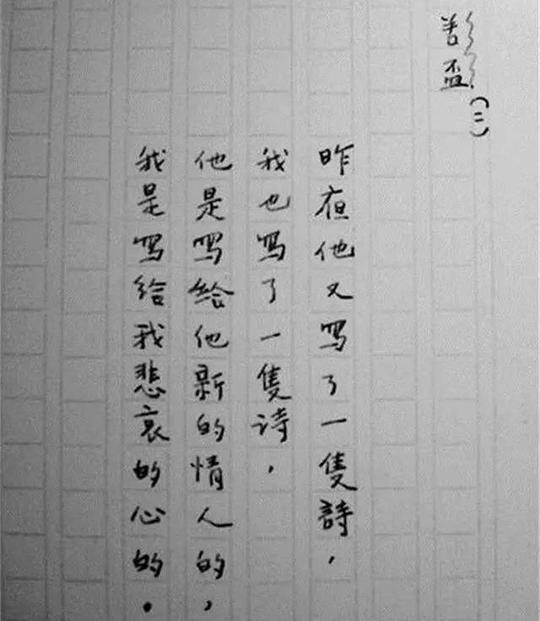 苦盃(二)
昨夜他又写了一隻詩，
我也写了一隻诗，
他是写給他新的情人的，
我是写给我悲哀的心的。